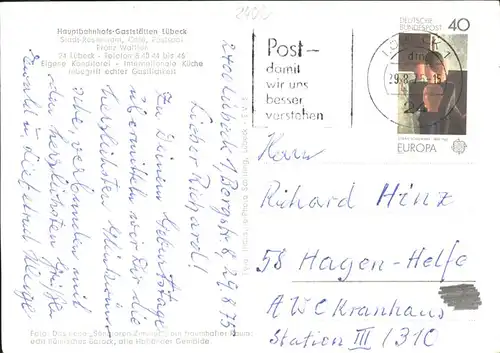 2400
Hauptbahnhofs-Gaststätten Lübeck
Stadt-Restaurant, Café, Festsaal
Franz Walther
24 Lübeck · Telefon 8 40 44 bis 46
Eigene Konditorei · Internationale Küche
Inbegriff echter Gastlichkeit
2400 Lübeck 1, Bergstr. 8, 29.8.75
Lieber Richard!
Zu Deinem Geburtstage
übermitteln wir Dir die
herzlichsten Glückwünsche,
verbunden mit
den herzlichsten Grüßen
Foto: Das
echt flämisches Barock, alte Holländer Gemälde
Post-
damit
wir uns
besser
verstehen
DEUTSCHE
BUNDESPOST
40
EUROPA
29.8.75-15
24
Herrn
Richard Hinz
58 Hagen-Helfe
AWC Kranhaus
Station III/310